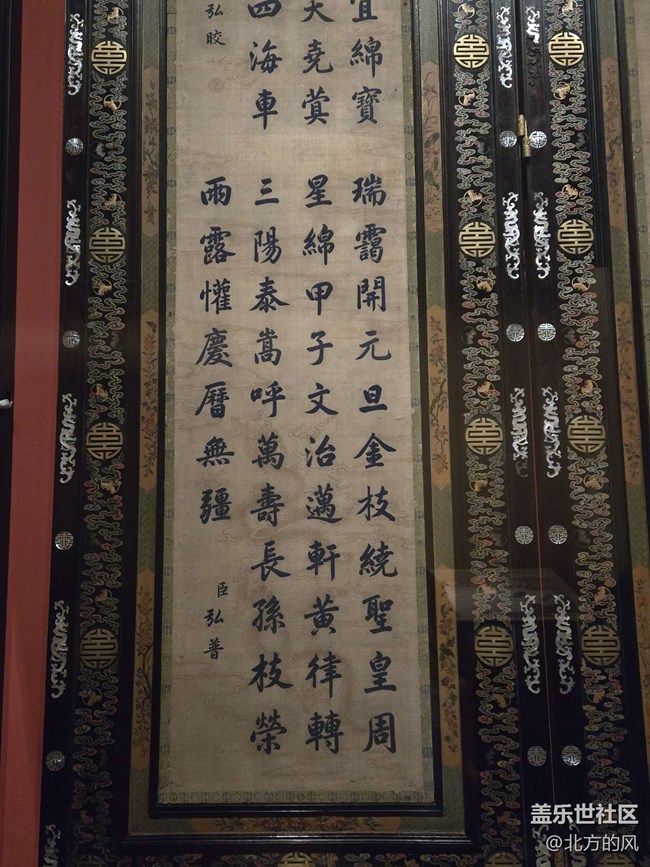 宜綿寶
堯蓂
四海車
弘晈
瑞靄開元旦金枝繞聖皇周
星綿甲子文治邁軒黃律轉
三陽泰嵩呼萬壽長孫枝榮
雨露懽慶曆無疆
臣弘普
盖乐世社区
@北方的风